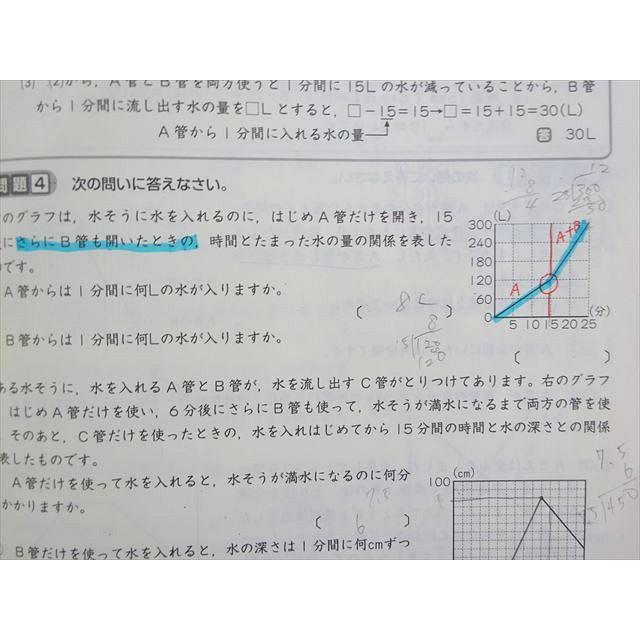 (3) (2)から，A管とB管を両方使うと1分間に15Lの水が減っていることから，B管
から1分間に流し出す水の量を□Lとすると，□−15=15→□=15+15=30(L)
A管から1分間に入れる水の量
答 30L
問題4 次の問いに答えなさい。
のグラフは，水そうに水を入れるのに，はじめA管だけを開き，15
にさらにB管も開いたときの，時間とたまった水の量の関係を表した
のです。
A管からは1分間に何Lの水が入りますか。
( 8L )
B管からは1分間に何Lの水が入りますか。
( )
8
15 120
120
12
300
(L)
300
240
180
120
60
0
5 10 15 20 25 (分)
A
A+B
ある水そうに，水を入れるA管とB管が，水を流し出すC管がとりつけてあります。右のグラフ
はじめA管だけを使い，6分後にさらにB管も使って，水そうが満水になるまで両方の管を使
そのあと，C管だけを使ったときの，水を入れはじめてから15分間の時間と水の深さとの関係
表したものです。
A管だけを使って水を入れると，水そうが満水になるのに何分
かかりますか。
( 6 )
B管だけを使って水を入れると，水の深さは1分間に何cmずつ
100 (cm)
7.5
6
450